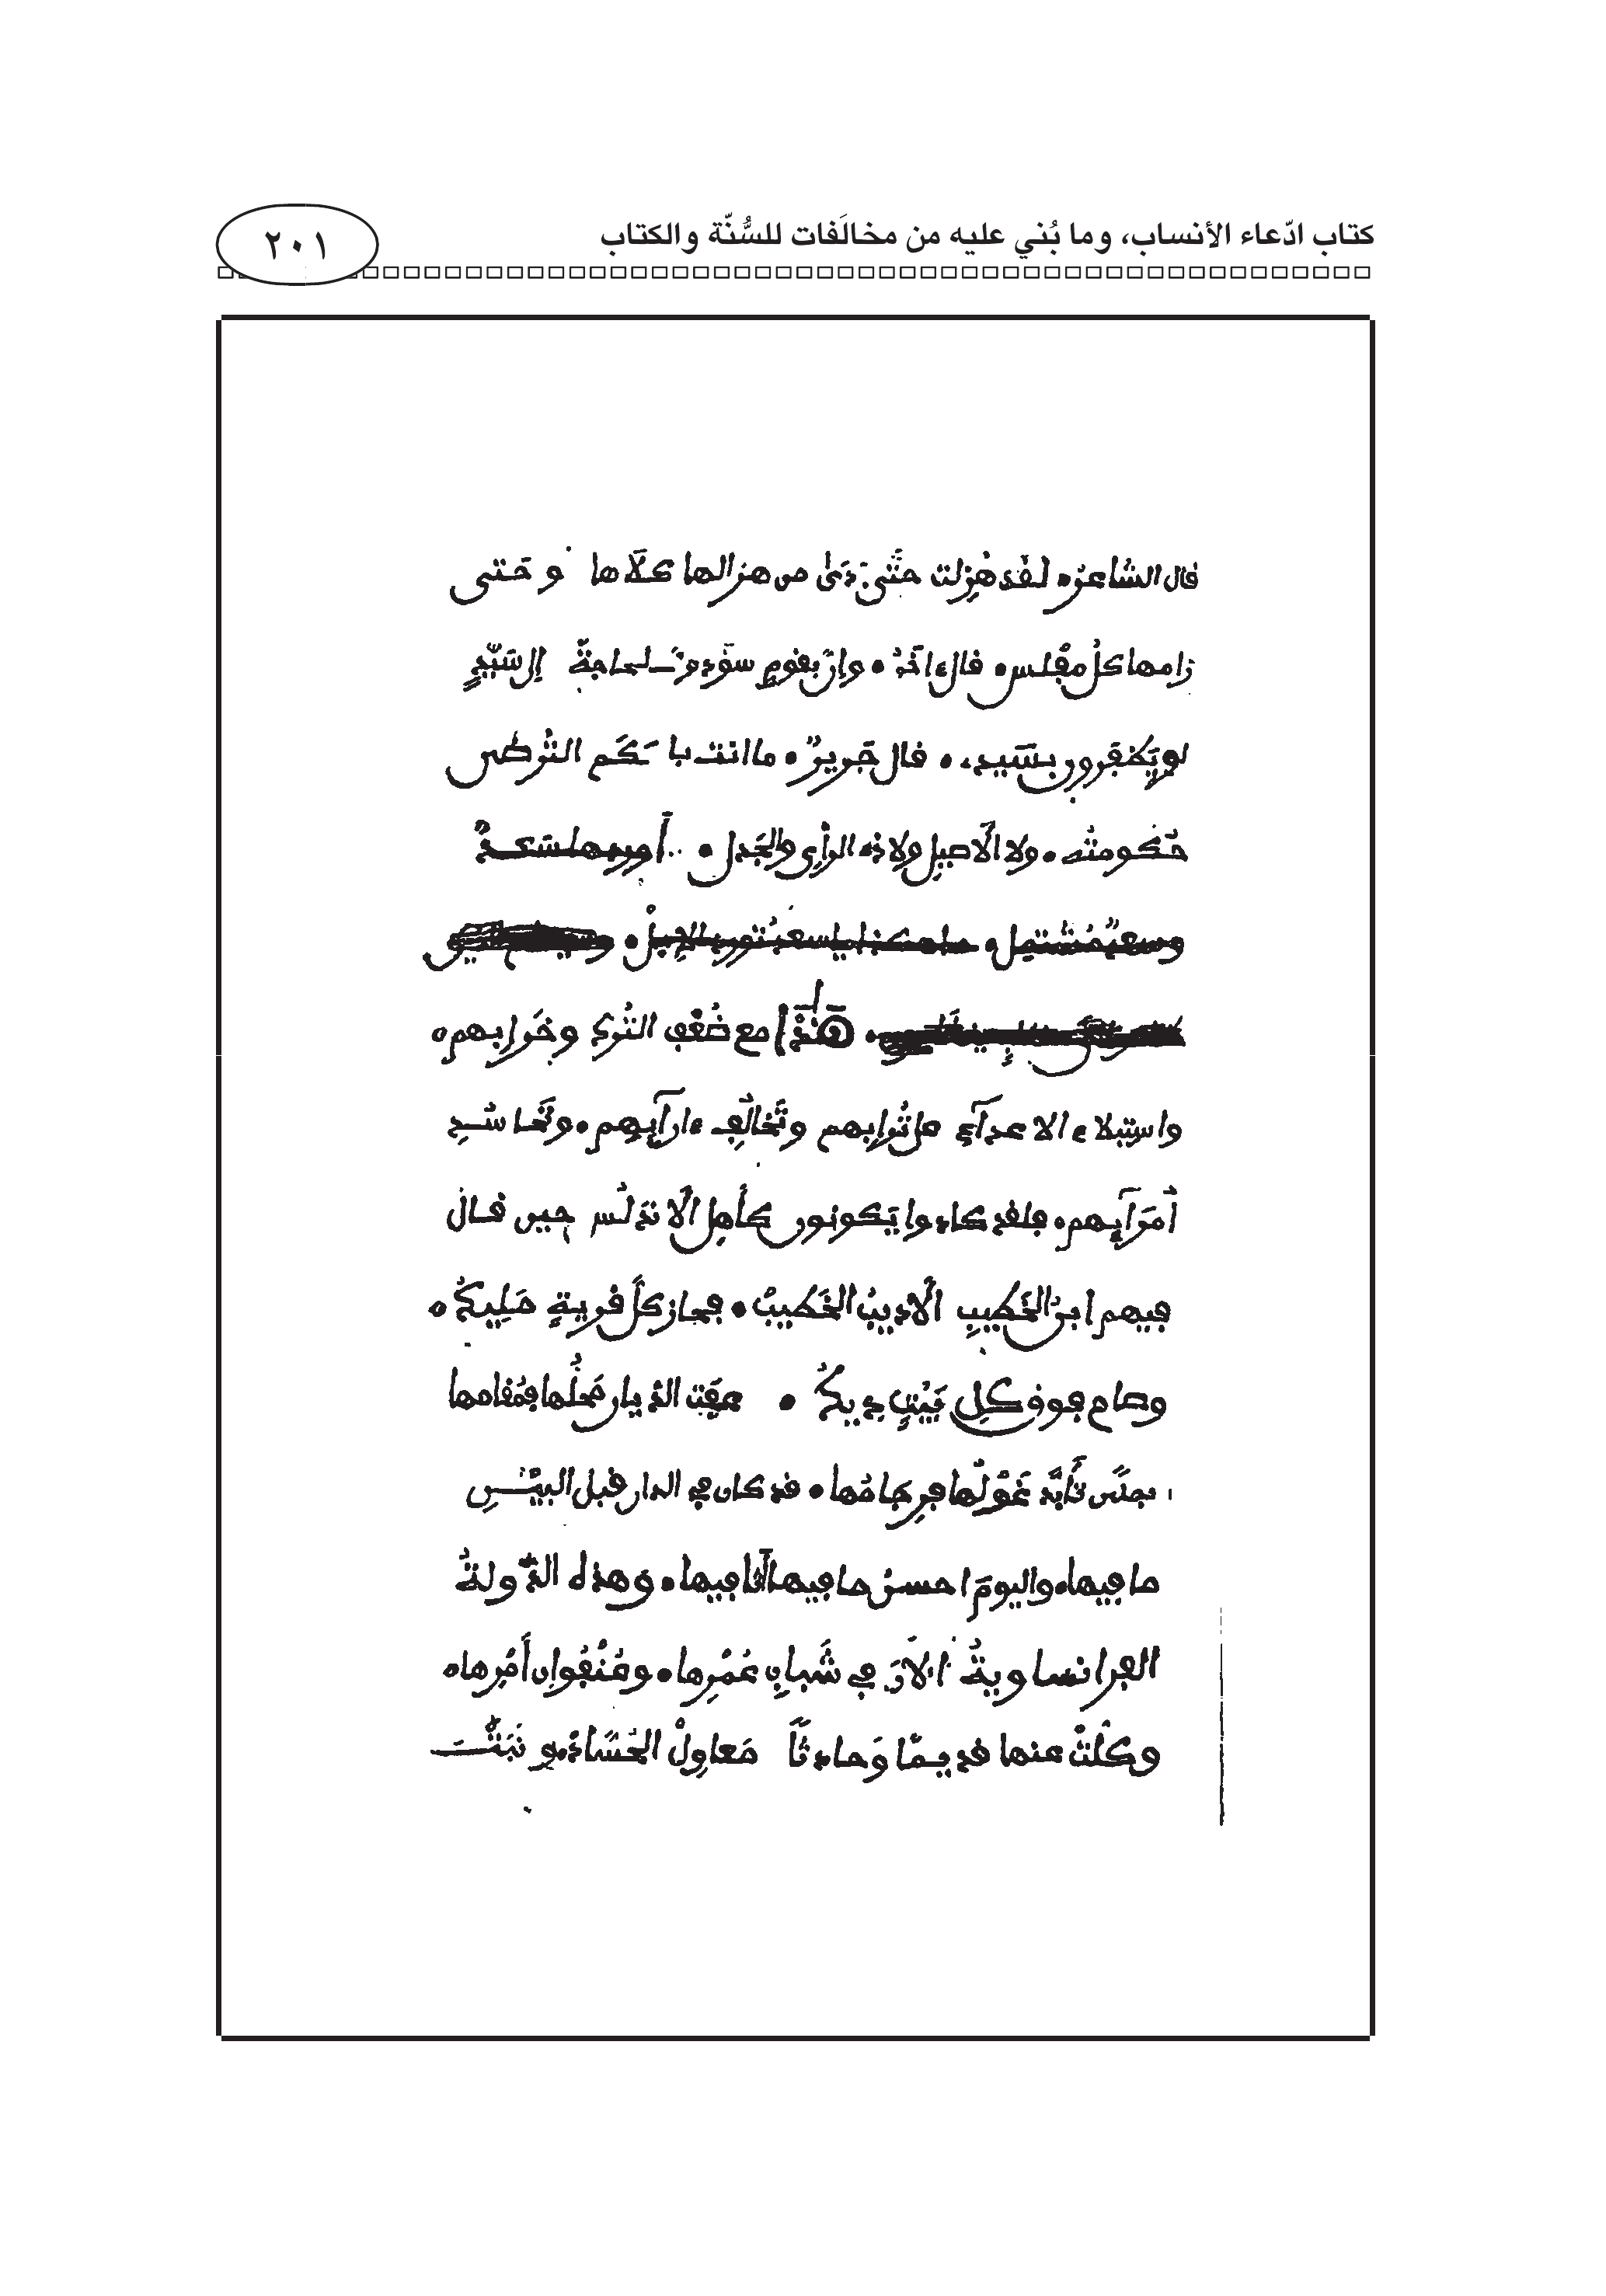 كتاب ادّعاء الأنساب، وما بُني عليه من مخالَفات للسُّنّة والكتاب
٢٠١
قال الشاعر لقد هُزلت حتّى بدى من هزالها كلاها وحتى
سامها كل مفلس قال ءاخر وإن بقوم سوّدوك لحاجة إلى سيّدٍ
لو يظفرون بسيد، قال جرير ما انت بالحَكَم التُرضى
حكومته ولا الأصيل ولا ذى الرأي والجدل أوردها سعدٌ
وسعدٌ مُشتمل ما هكذا يا سعدُ تورد الإبل
هٰذا مع ضُعْف التُّرك وخرابهم
واستيلاء الاعداءِ على تُرابهم وتخالُف ءارآيِهم وتحاسُدِ
أُمَرآيِهم فلقد كادوا يَكونون كأهل الأندلُس حين قال
فيهم ابن الخطيب الأديبُ الخَطيبُ فى كل قريةٍ مَلِيكٌ
وصاح فوق كلِ بَيْتٍ دِيكٌ عفت الديار محلُّها فمُقامها
بمِنًى تأبّد غَوْلُها فرِجامُها قد كان في الدار قبل البيْنِ
ما فيها واليومَ احسنُ ما فيها أثافيها وهذه الدّولةُ
الفرانساويةُ الآن في شَبابِ عُمُرِها وعُنْفُوانِ أَمْرِها
وكلّتْ عنها قديمًا وَحادثًا مَعاوِلُ الحُسّاد ونَبَتْ